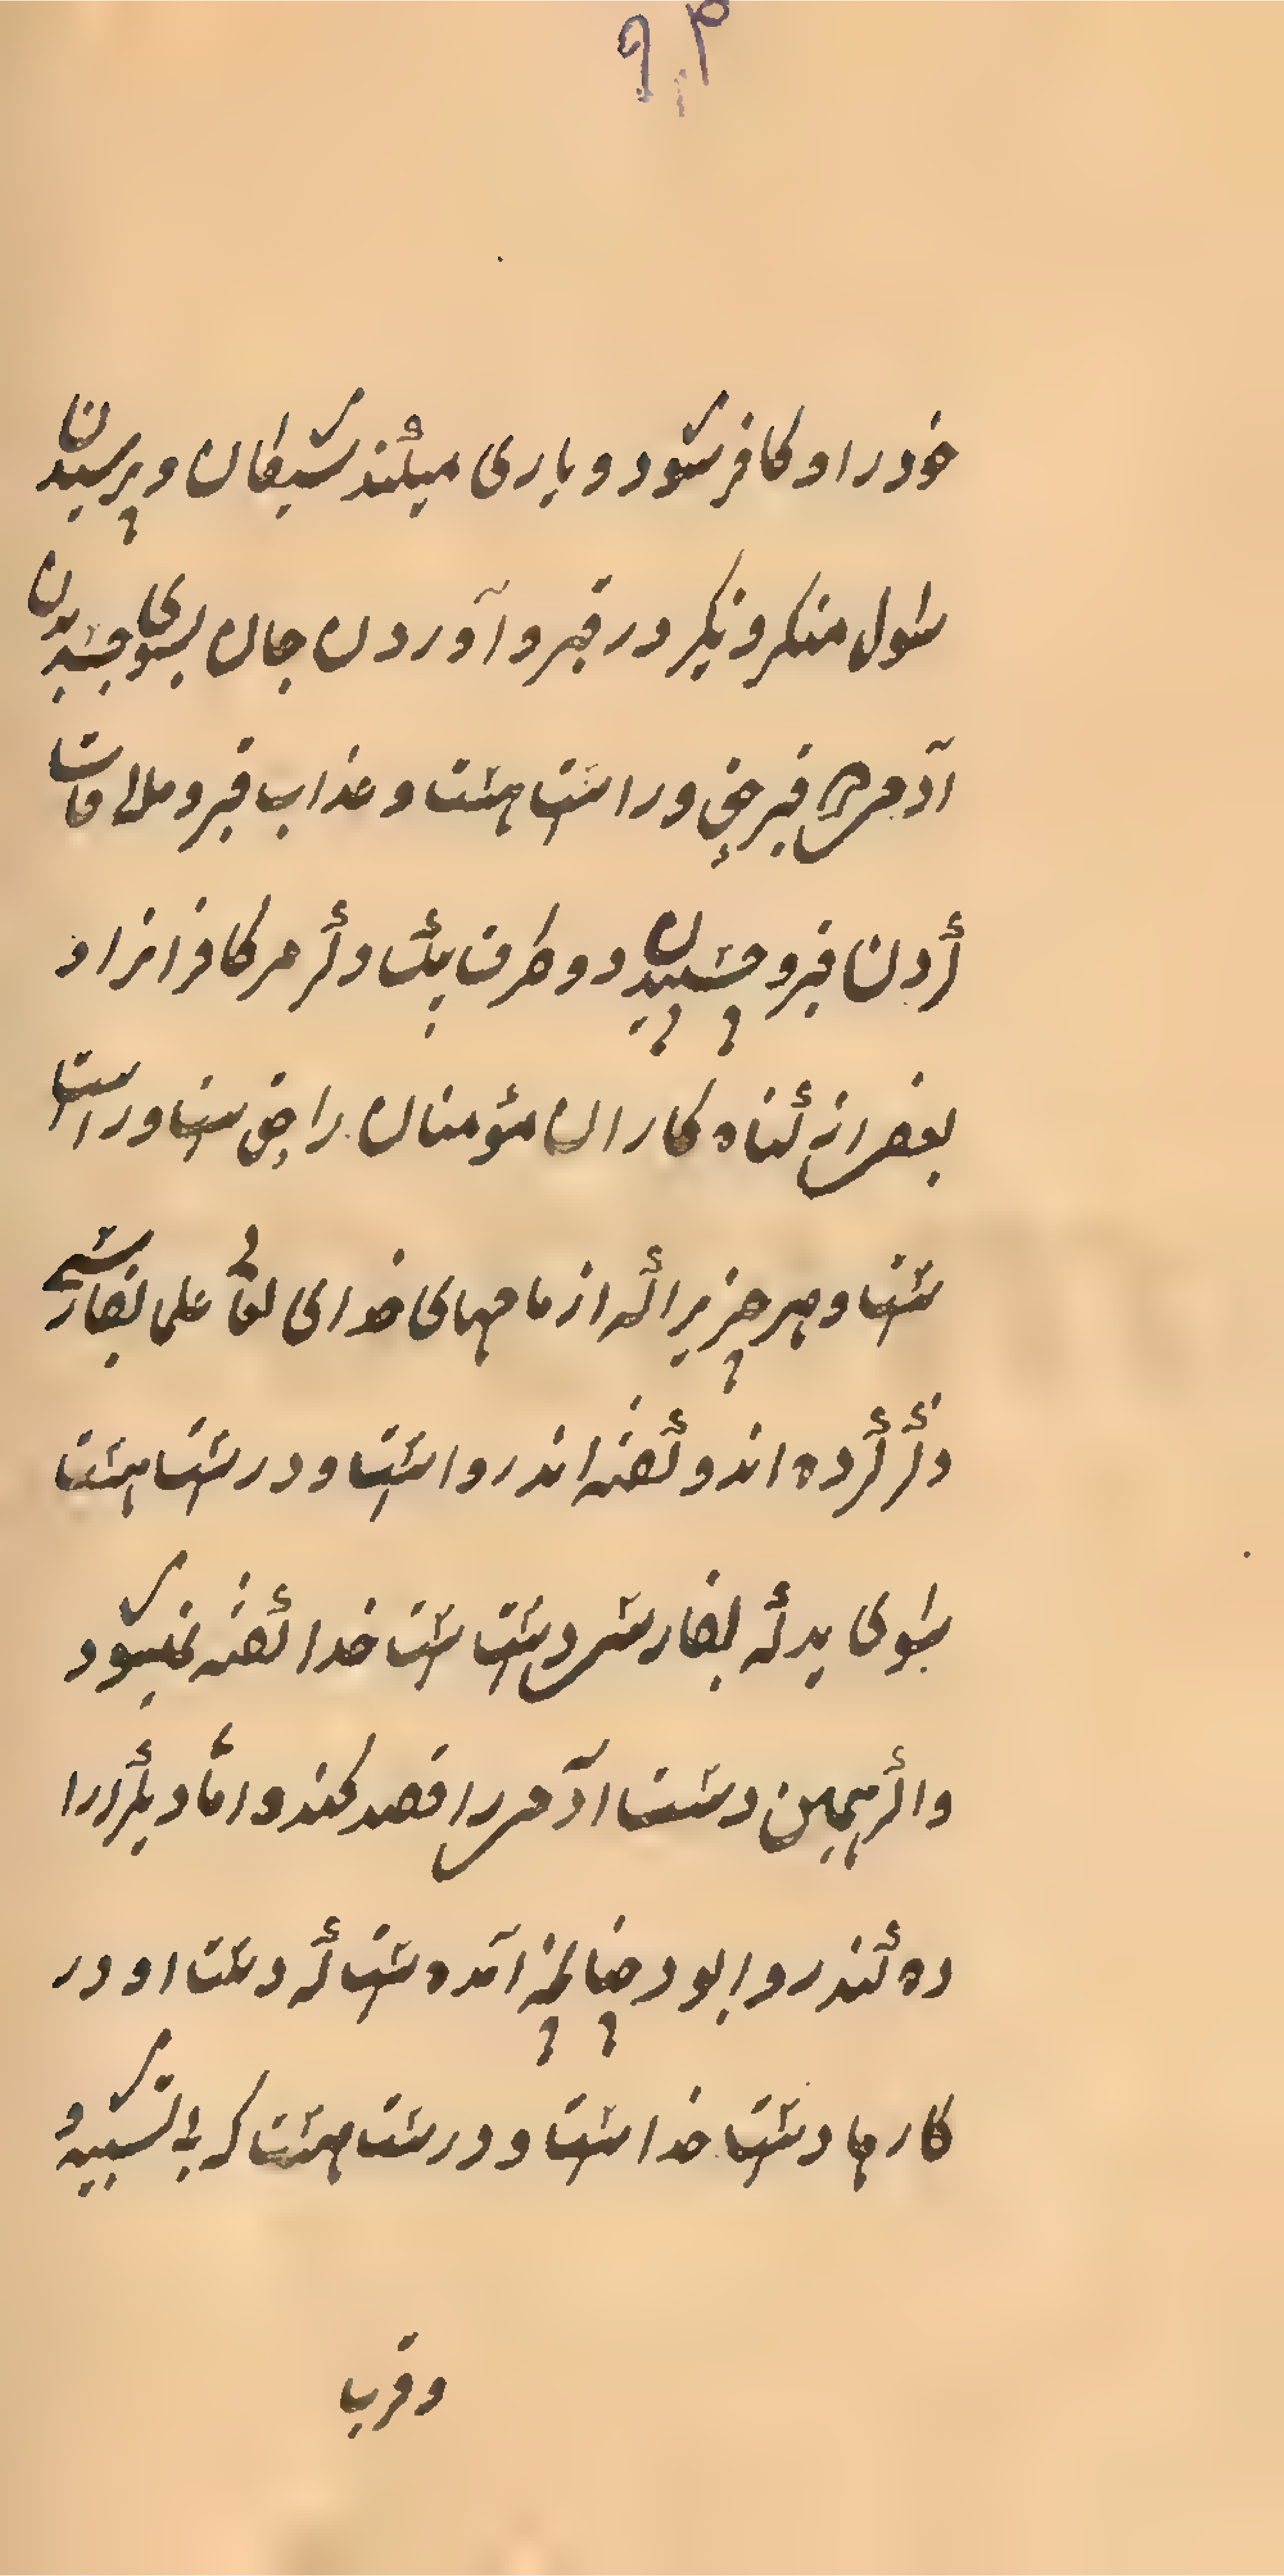 خود را و کافر شود و یاری میکند شیطان و پرسیدن
سٔول منکر و نکیر در قبر و آوردن جان بسوی جسد بدن
آدمی قبر حق و راست هست و عذاب قبر و ملاقات
کردن قبر و چسپیدن دو طرف یک دگر مر کافرانرا و
بعض از گناه کاران مؤمنان را حق ست و راست
ست و هر چیزیرا که از مامهای خدای تعا علی بفارسی
ذکر کرده اند و گفته اند روا ست و درست هست
بسوی ید که بفارسی دست ست خدا گفته نمیشود
و اگر همین دست آدمی را قصد کند و امّا دیگر ارا
ده کند روا بود چنانچه آمده ست که دست او در
کارها دست خداست و درست هست که بی تشبیه و
وقرب